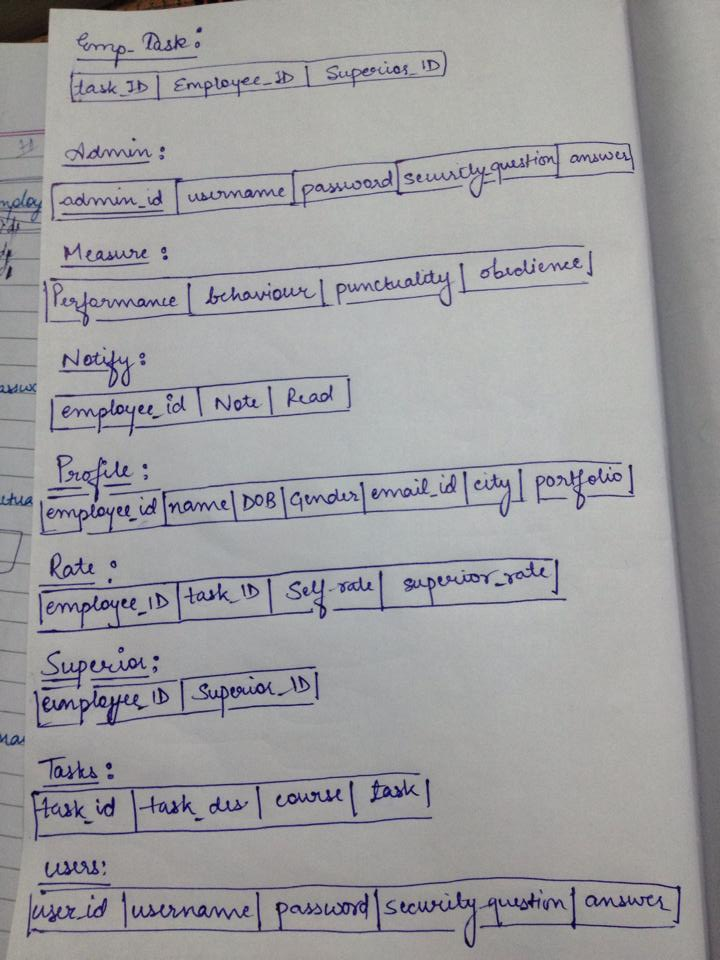 Emp_Task:
task_ID | Employee_ID | Superior_ID
Admin:
admin_id | username | password | security question | answer
Measure:
Performance | behaviour | punctuality | obedience
Notify:
employee_id | Note | Read
Profile:
employee_id | name | DOB | Gender | email_id | city | portfolio
Rate:
employee_ID | task_ID | Self-rate | superior_rate
Superior:
employee_ID | Superior_ID
Tasks:
task_id | task_des | course | task
users:
user_id | username | password | security question | answer